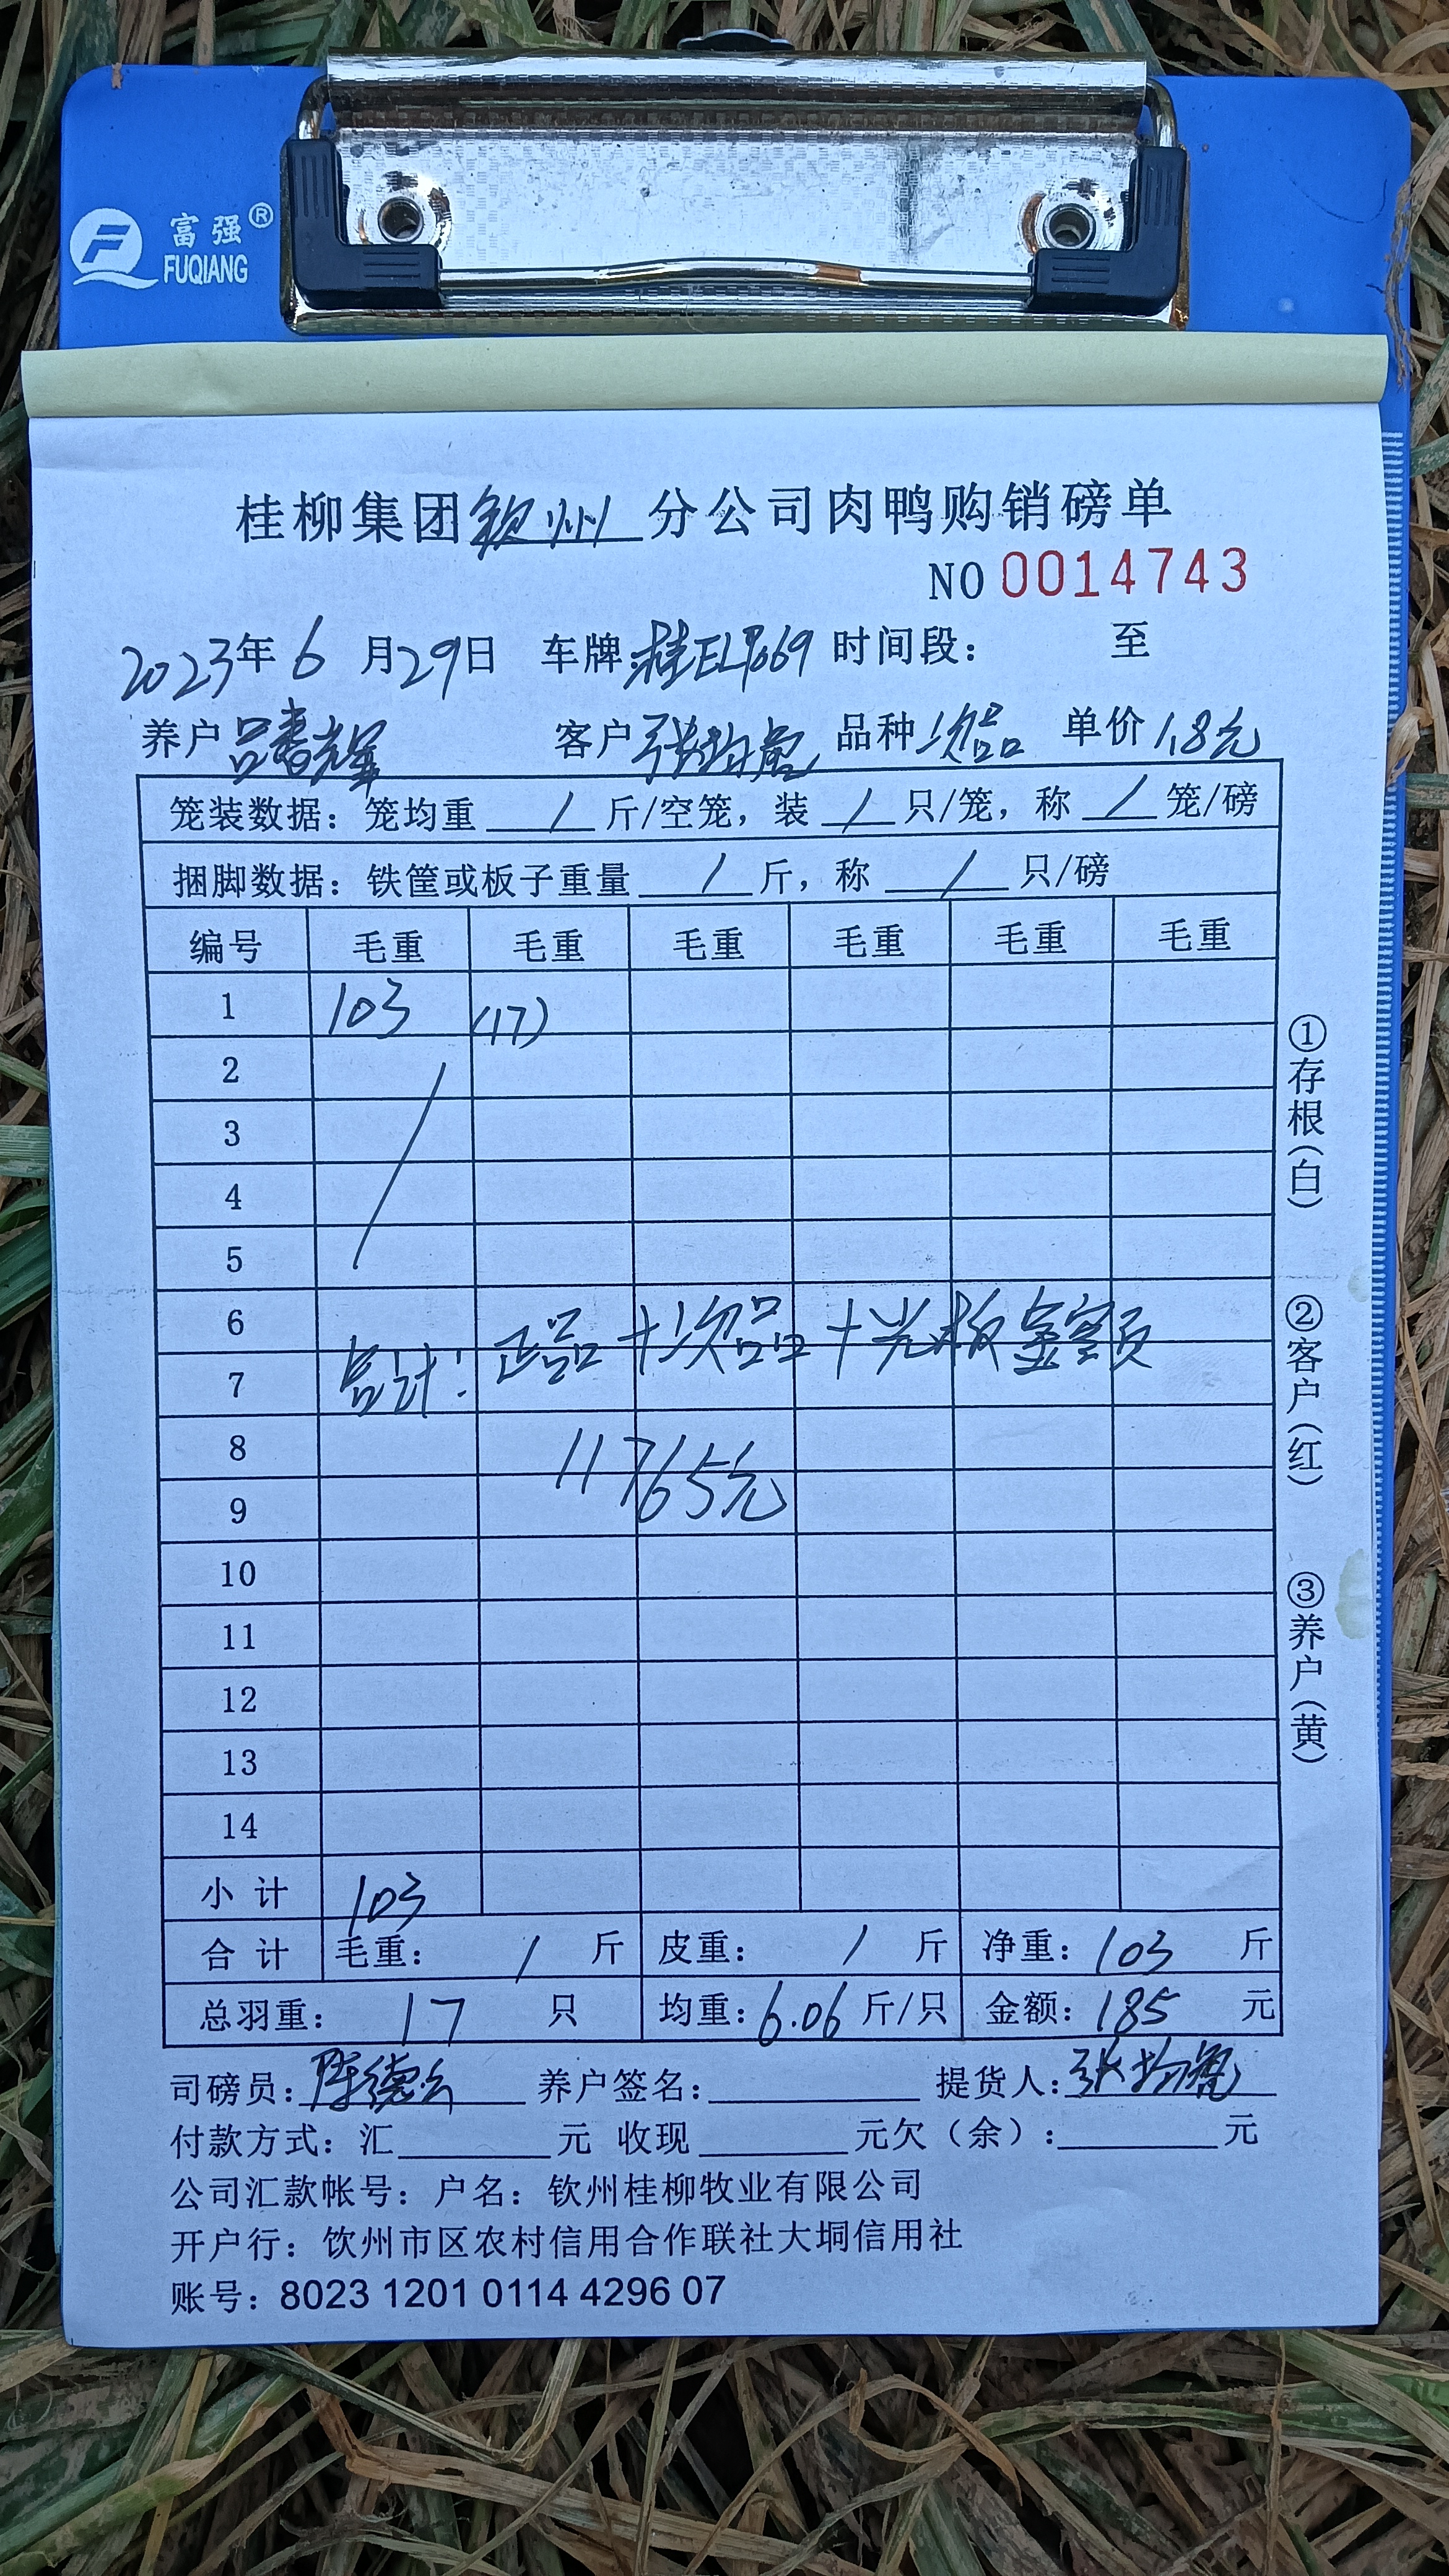 富强®
FUQIANG
桂柳集团钦州分公司肉鸭购销磅单
NO 0014743
2023年6月29日 车牌:桂EL7669 时间段: 至
养户 客户 张 品种 次品 单价 1.8元
笼装数据：笼均重 / 斤/空笼，装 / 只/笼，称 / 笼/磅
捆脚数据：铁筐或板子重量 / 斤，称 / 只/磅
编号 毛重 毛重 毛重 毛重 毛重 毛重
1 103 (17)
2
3
4
5
6
7
总计: 正品+次品+光板金额
8
9
11765元
10
11
12
13
14
小计 103
合计 毛重: / 斤 皮重: / 斤 净重: 103 斤
总羽重: 17 只 均重: 6.06 斤/只 金额: 185 元
司磅员: 陈德 养户签名: 提货人: 张
付款方式：汇 元 收现 元欠（余）: 元
公司汇款帐号：户名：钦州桂柳牧业有限公司
开户行：饮州市区农村信用合作联社大垌信用社
账号：8023 1201 0114 4296 07
①存根(白)
②客户(红)
③养户(黄)